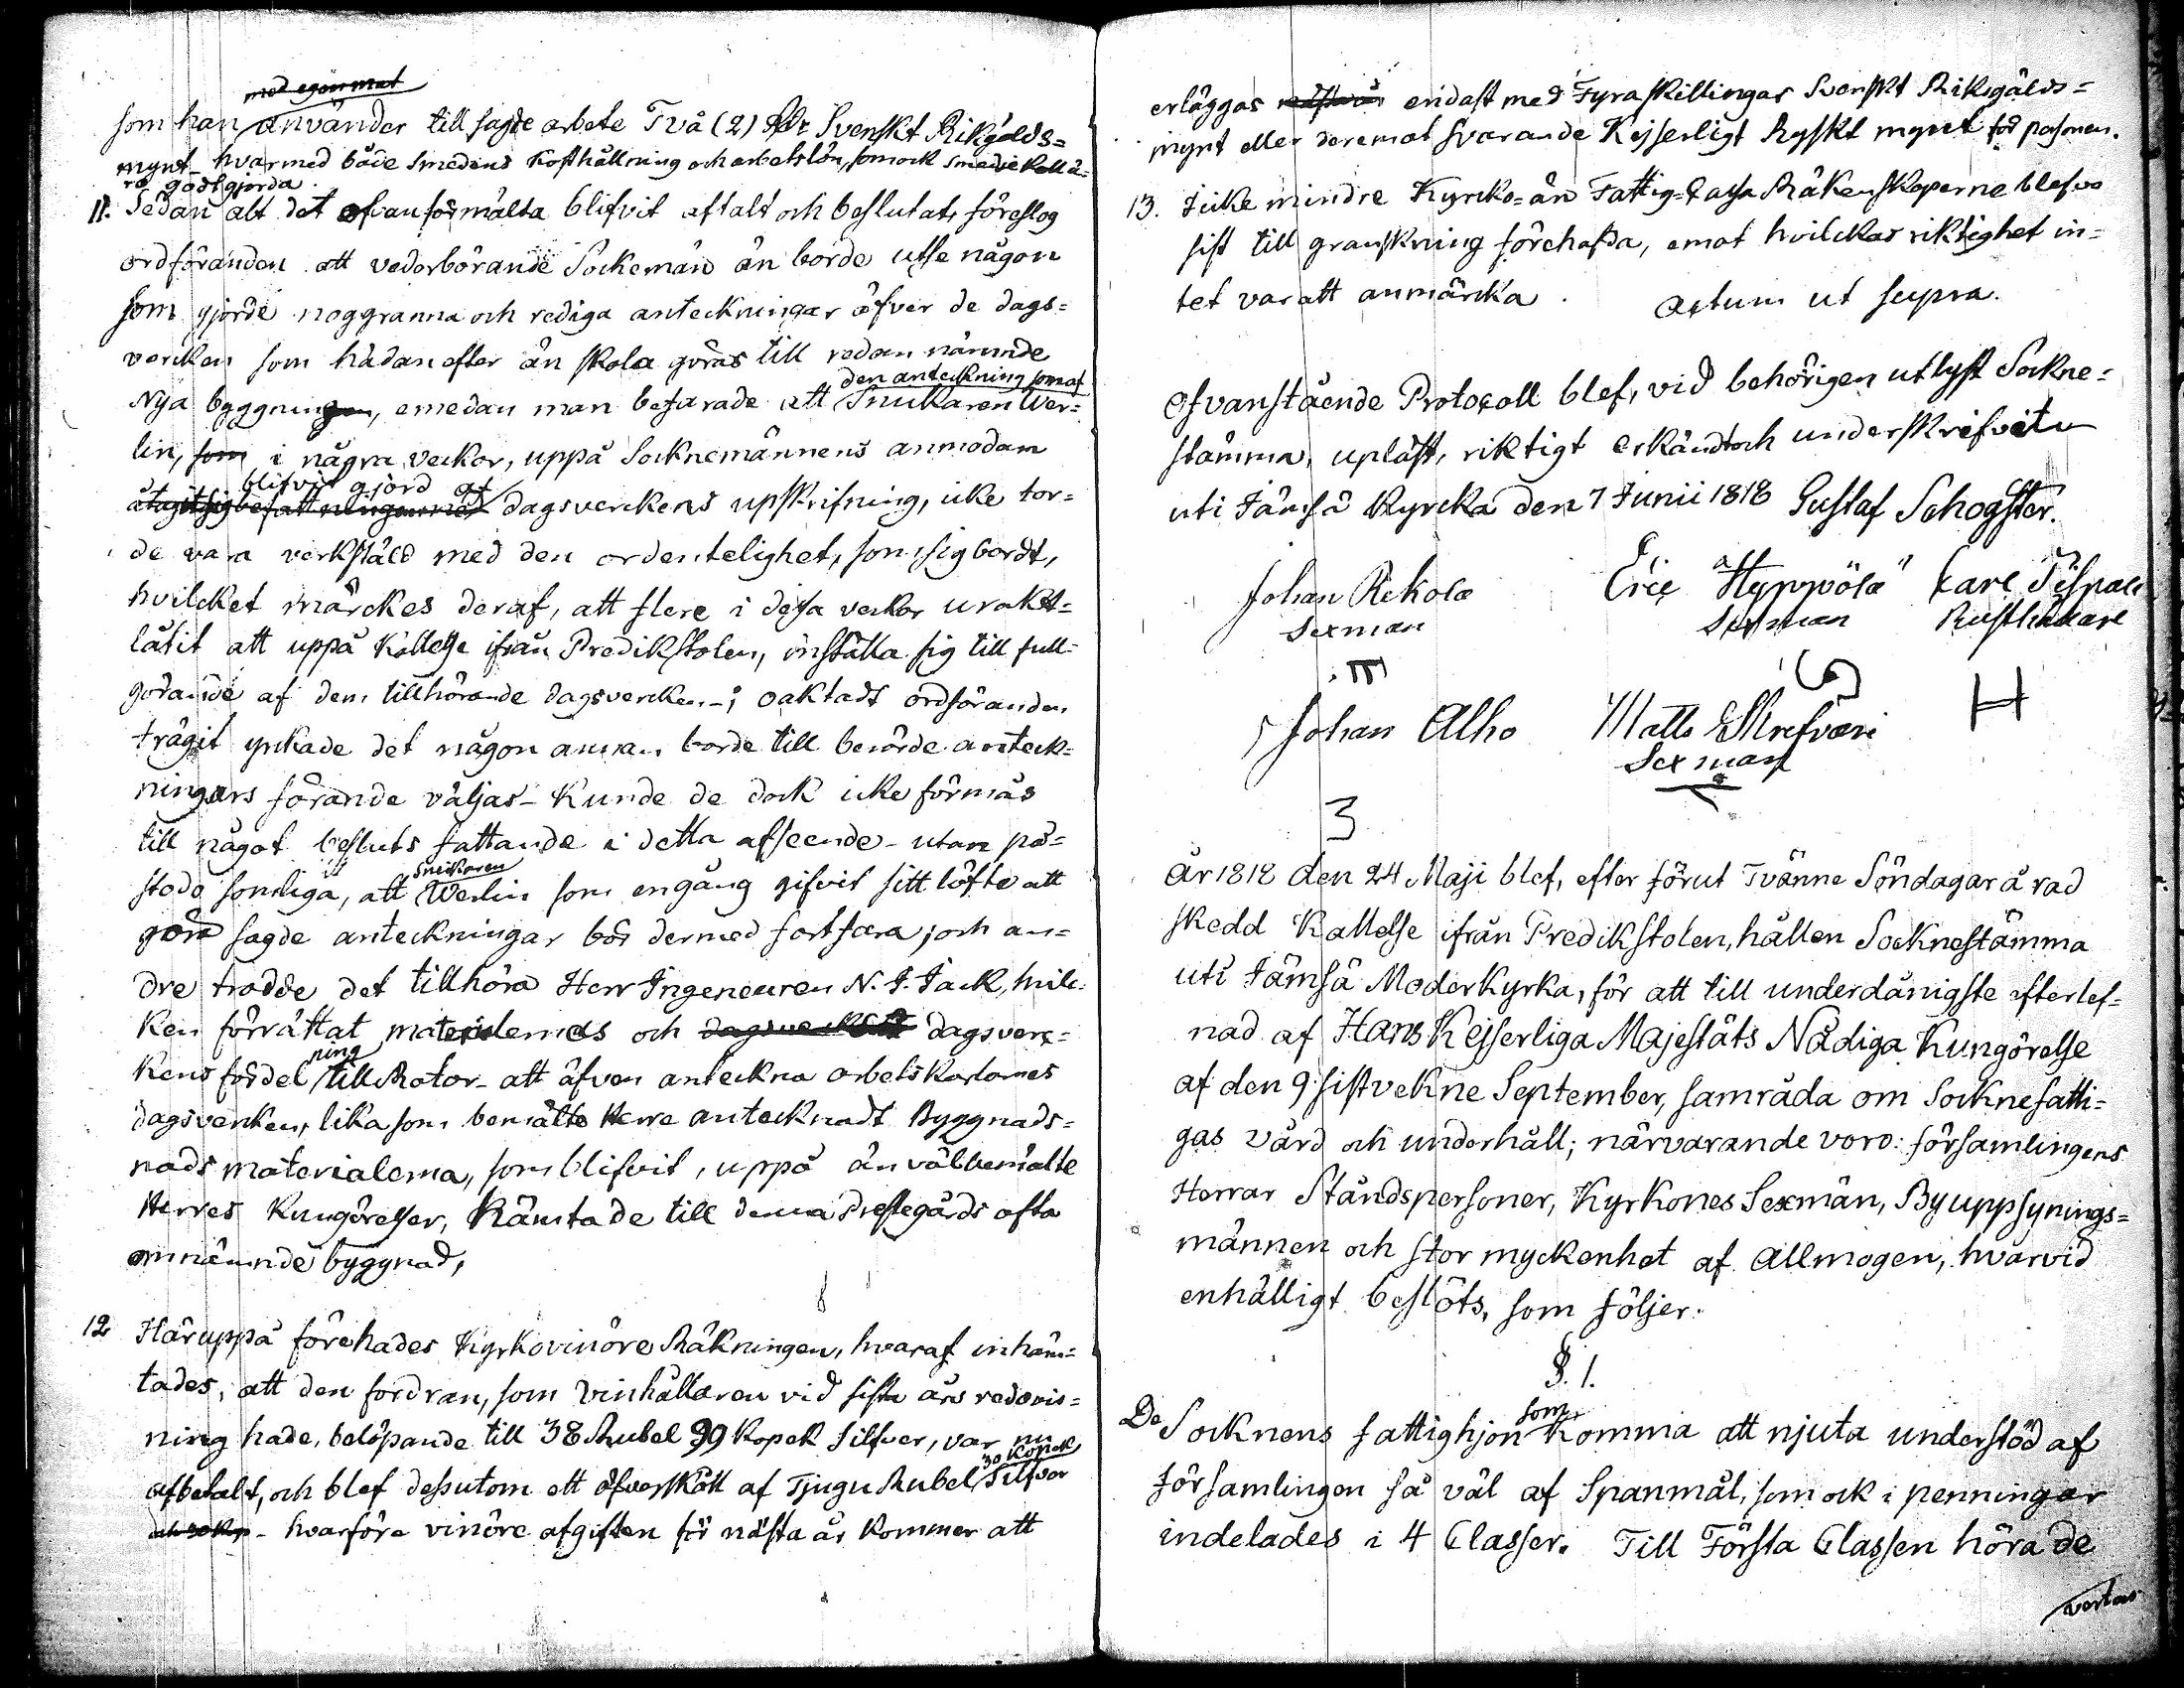 med egen mat
som han använder till sagde arbete Två (2) Rdr Svenskt Rikgälds=
mynt - hvarmed både Smedens Kosthållning och arbetslön, som ock Smedie Koll ä=
ro godtgjorda.
11. Sedan alt det ofvanförmälta blifvit aftalt och beslutat, föreslog
ordföranden att vederbörande Sockemän än borde utse någon
som gjorde noggranna och rediga anteckningar öfver de dags=
vercken som hädanefter än skola göras till redan nämnde
den anteckning som af
Nya byggningen, emedan man befarade att Snickaren Wer=
lin, som i några veckor, uppå Socknemännens anmodan
blifvit gjord af
åtagit sig befattningen med dagsverckens upskrifning, icke tor=
de vara verkstäld med den ordentelighet, som sig bordt,
hvilcket märckes deraf, att flere i dessa veckor urakt=
låtit att uppå Kallelse ifrån Predikstolen, inställa sig till full=
görande af dem tillhörande dagsvercken -; oaktadt ordföranden
trägit yrkade det någon annan borde till berörde anteck=
ningars förande väljas - Kunde de dock icke förmås
till något besluts fattande i detta afseende - utan på=
Snickaren
stodo somliga, att Werlin som engång gifvit sitt löfte att
göra sagde anteckningar bör dermed fortfara; och an=
dre trodde det tillhöra Herr Ingeneuren N. J. Jack, hvilc=
ken förrättat materialernas och dagsverckens dagsverc=
ning
kens fördel till Rotor - att äfven anteckna arbetskarlarnes
dagsvercken, lika som bemälte Herre antecknadt Byggnads=
nads materialerna, som blifvit, uppå än välbemälte
Herres Kungörelser, hämtade till denna Prestegårds ofta
omnämnde byggnad,
12 Häruppå förehades Kyrkovinöre Räkningen, hvaraf inhäm=
tades, att den fordran, som Vinhållaren vid sista års redovis=
ning hade, belöpande till 38 Rubel 99 Kopek Silfver, var nu
30 Kopek
afbetalt, och blef dessutom ett öfverskått af Tjugu Rubel Silfver
och 30 Kop - hvarföre vinöre afgiften för nästa år kommer att
erläggas nästa år endast med Fyra skillingar Svenskt Riksgälds=
mynt eller deremot svarande Kejserligt Ryskt mynt för personen.
13. Icke mindre Kyrcko= än Fattig=Cassa Räkenskaperne blefvo
sist till granskning förehafda, emot hvilckas riktighet in=
tet var att anmärcka. Actum ut supra.
Ofvanstående Protocoll blef, vid behörigen utlyst Sockne=
stämma, upläst, riktigt erkändt och underskrifvit
uti Jämsä Kyrcka den 7 Junii 1818 Gustaf Schogster.
Johan Rekola Eric Hyppölä Carl
Sexman Sexman Rusthållare
Johan Alho Matts
Sexman
H
3
År 1818 den 24 Maji blef, efter förut Tvänne Söndagar å rad
skedd Kallelse ifrån Predikstolen, hållen Socknestämma
uti Jämsä Moderkyrka, för att till underdånigste efterlef=
nad af Hans Kejserliga Majestäts Nådiga Kungörelse
af den 9 sistvekne September, samråda om Socknefatti=
gas vård och underhåll; närvarande voro: församlingens
Herrar Ståndspersoner, Kyrkones Sexmän, Byuppsynings=
männen och stor myckenhet af Allmogen, hvarvid
enhälligt beslöts, som följer.
§. 1.
som
De Socknens fattighjon Komma att njuta understöd af
Församlingen så väl af Spanmål, som ock i penningar
indelades i 4 Classer. Till Första Classen höra de
vertas